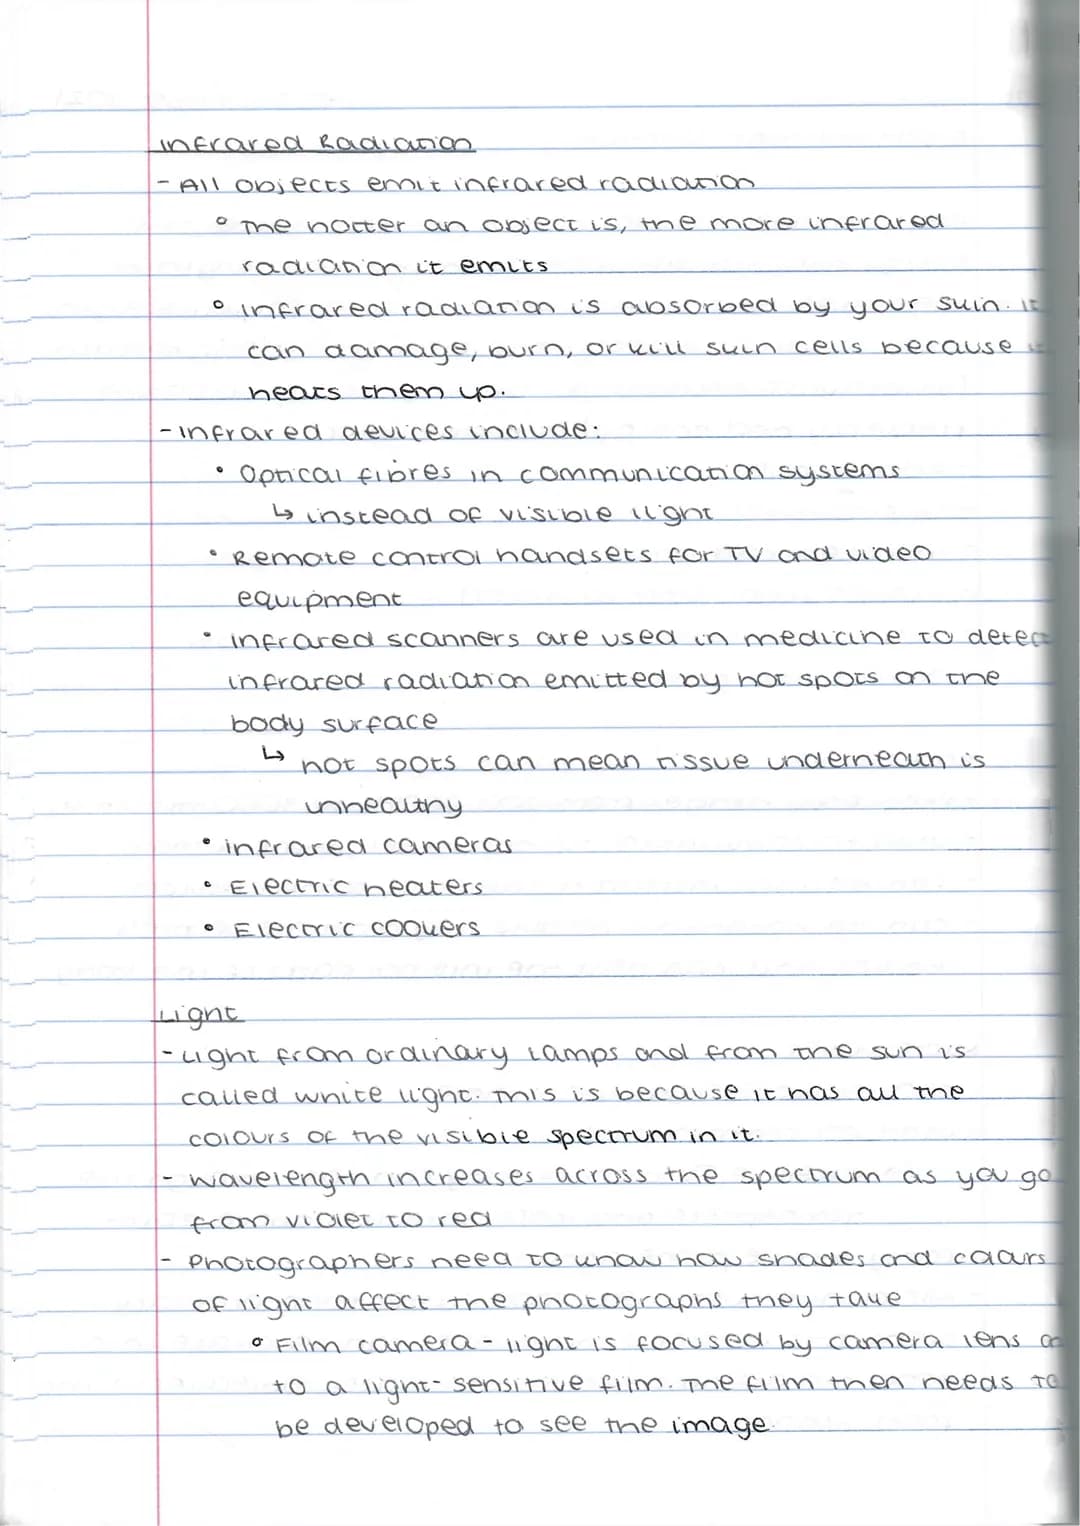 Infrared Radiation
- All objects emit infrared radiation
° The hotter an object is, the more infrared
radiation it emits
° infrared radiation is absorbed by your skin. It
can damage, burn, or kill skin cells because it
heats them up.
- infrared devices include:
• Optical fibres in communication systems
↳ instead of visible light
• Remote control handsets for TV and video
equipment
• infrared scanners are used in medicine to detect
infrared radiation emitted by hot spots on the
body surface
↳ hot spots can mean tissue underneath is
unhealthy
• infrared cameras
• Electric heaters
• Electric cookers
Light
- Light from ordinary lamps and from the sun is
called white light. This is because it has all the
colours of the visible spectrum in it.
- wavelength increases across the spectrum as you go
from violet to red
- Photographers need to know how shades and colours
of light affect the photographs they take
° Film camera - light is focused by camera lens
to a light-sensitive film. The film then needs to
be developed to see the image.